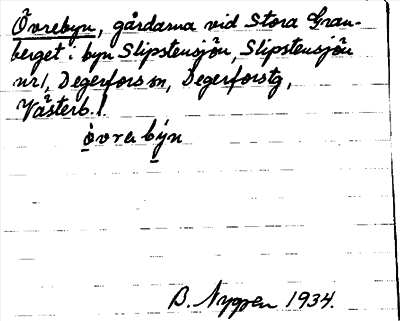 Övrebyn, gårdarna vid Stora Gran-
berget i byn Slipstensjön, Slipstensjön
nr 1, Degerfors sn, Degerforstg,
Västerb. l.
òvrebýn
B. Nygren 1934.